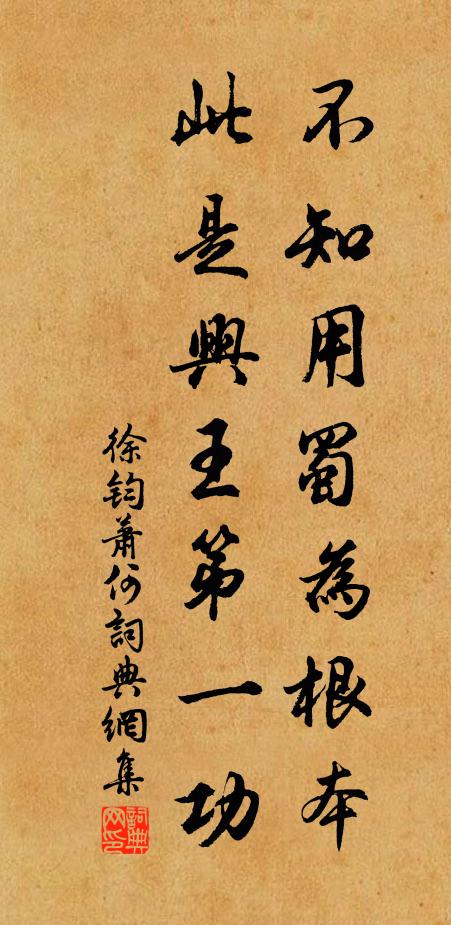 不知用蜀為根本
此是興王第一功
徐鈞蕭何詞典網集
詞典网印